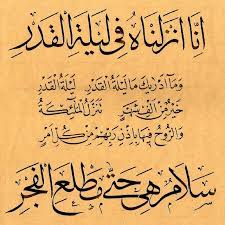 انا انزلناه فى ليلة القدر
وما ادريك ما ليلة القدر ليلة القدر
خير من الف شهر تنزل الملئكة
والروح فيها باذن ربهم من كل امر
سلام هى حتى مطلع الفجر